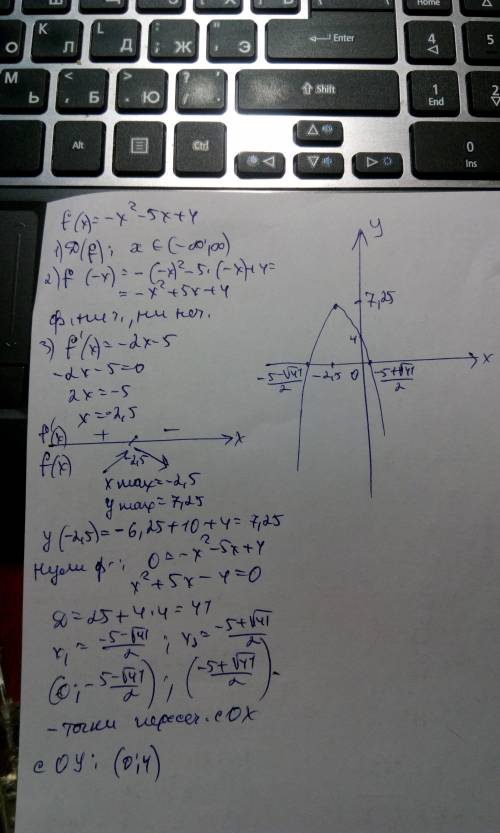 Home
О К Л Д Ж Э Enter 4
М Ь Б Ю ? / Shift 1 End 2
Alt Ctrl 0 Ins
f(x)=-x²-5x+4
1) D(f); x∈(-∞;∞)
2) f(-x)=-(-x)²-5·(-x)+4=
=-x²+5x+4
ф. ни ч., ни неч.
3) f'(x)=-2x-5
-2x-5=0
2x=-5
x=-2,5
f'(x) + - x
f(x) -2,5
x max=-2,5
y max=7,25
y(-2,5)=-6,25+10+4=7,25
Нули ф-: 0=-x²-5x+4
x²+5x-4=0
D=25+4·4=41
x₁=(-5-√41)/2; x₂=(-5+√41)/2
(0;(-5-√41)/2); ((-5+√41)/2)-
-точки пересеч. с OX
с OY: (0;4)
y
7,25
4
x
(-5-√41)/2 -2,5 0 (-5+√41)/2